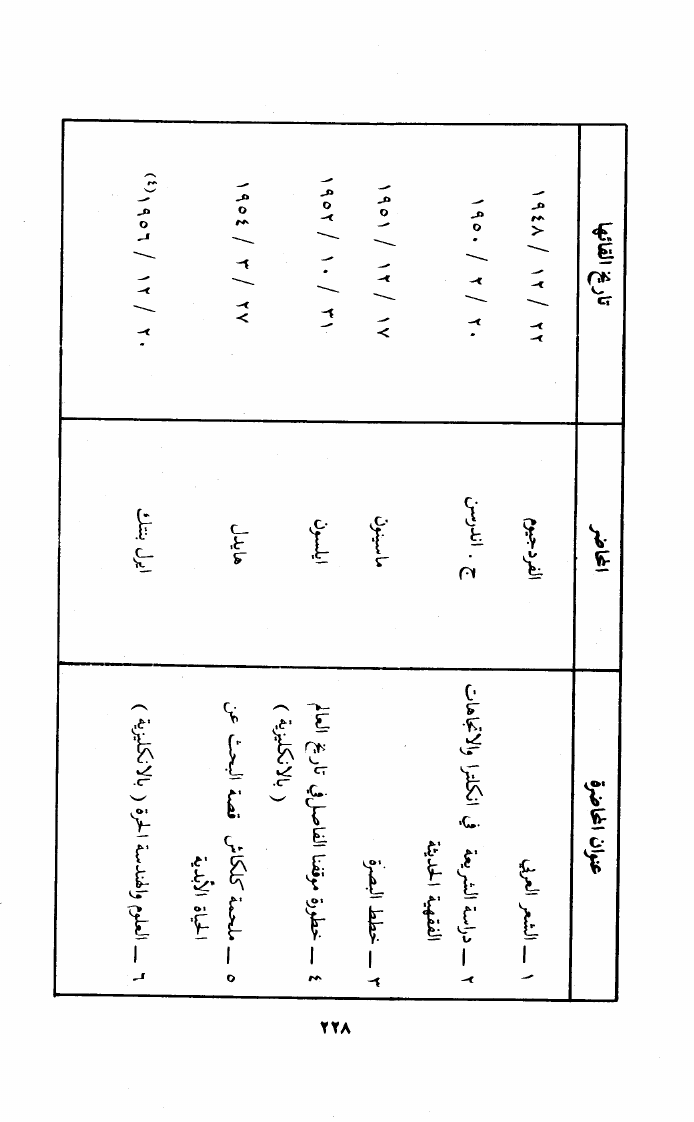 عنوان المحاضرة المحاضر تاريخ القائها
١ — الشعر العربي الفردجيوم ٢٢ / ١٢ / ١٩٤٨
٢ — دراسة الشريعة في انكلترا والاتجاهات ج . اندرسن ٢٠ / ٢ / ١٩٥٠
الفقهية الحديثة
٣ — خطط البصرة ماسينون ١٧ / ١٢ / ١٩٥١
٤ — خطورة موقفنا الفاصل في تاريخ العالم ايلسون ٣١ / ١٠ / ١٩٥٢
( بالانكليزية )
٥ — ملحمة كلكاش قصة البحث عن هايدل ٢٧ / ٣ / ١٩٥٤
الحياة الأبدية
٦ — العلوم والهندسة الحرة ( بالانكليزية ) ايرل بنتك ٢٠ / ١٢ / ١٩٥٦(٤)
٢٢٨